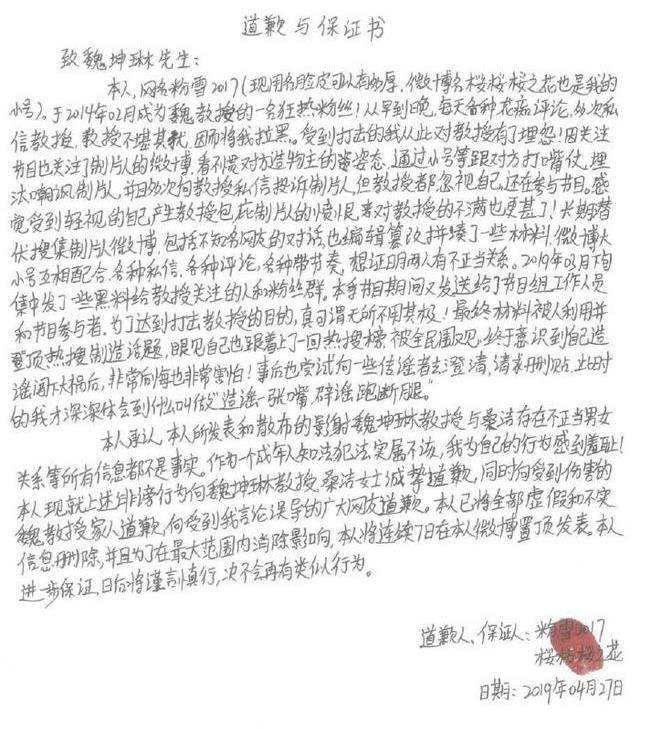 道歉与保证书
致魏坤琳先生：
本人，网名粉雪2017（现用名脸皮可以有多厚，微博名桜桜桜之花也是我的
小号）。于2014年02月成为魏教授的一名狂热粉丝！从早到晚，每天各种花痴评论，多次私
信教授，教授不堪其扰，因而将我拉黑。受到打击的我从此对教授有了埋怨！因关注
节目也关注了制片人的微博，看不惯对方造物主的姿态，通过小号等跟对方打嘴仗，埋
汰嘲讽制片人，并因多次向教授私信投诉制片人，但教授都忽视自己，还在参与节目，感
觉受到轻视的自己产生教授包庇制片人的愤恨，来对教授的不满也更甚了！长期潜
伏搜集制片人微博，包括不知名网友的对话，也编辑篡改拼凑了一些材料，微博大
小号互相配合，各种私信，各种评论，各种带节奏，想证明两人有不正当关系。2019年03月下旬
集中发了一些黑料给教授关注的人和粉丝群。本季节目期间又发送给了节目组工作人员
和节目参与者。为了达到打击教授的目的，真可谓无所不用其极！最终材料被人利用并
登顶热搜制造话题，眼见自己也跟着上了一回热搜榜，被全民围观，终于意识到自己造
谣闯下大祸后，非常后悔也非常害怕！事后也尝试向一些传谣者去澄清，请求删贴，此时
的我才深深体会到什么叫做“造谣一张嘴，辟谣跑断腿。”
本人承认，本人所发表和散布的影射魏坤琳教授与桑洁存在不正当男女
关系等所有信息都不是事实。作为一个成年人知法犯法实属不该，我为自己的行为感到羞耻！
本人现就上述诽谤行为向魏坤琳教授、桑洁女士诚挚道歉，同时向受到伤害的
魏教授家人道歉，向受到我言论误导的广大网友道歉。本人已将全部虚假和不实
信息删除，并且为了在最大范围内消除影响，本人将连续7日在本人微博置顶发表。本人
进一步保证，日后将谨言慎行，决不会再有类似行为。
道歉人、保证人：粉雪2017
桜桜桜之花
日期：2019年04月27日